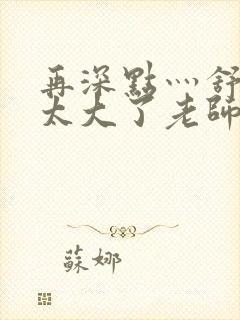 再深點灬舒
太大了老師
蘇娜